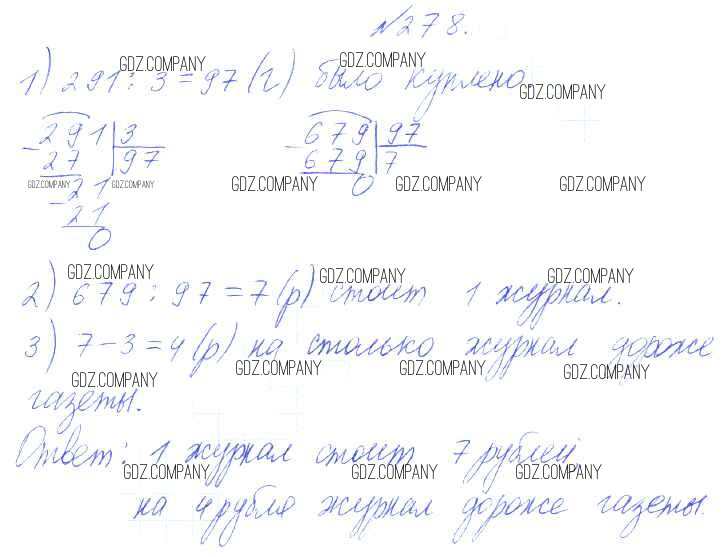 №278.
1) 291 : 3 = 97 (г) было куплено.
GDZ.COMPANY GDZ.COMPANY GDZ.COMPANY
291 | 3   679 | 97
27 | 97   679 | 7
GDZ.COMPANY GDZ.COMPANY GDZ.COMPANY GDZ.COMPANY GDZ.COMPANY
21   0
21
0
GDZ.COMPANY GDZ.COMPANY GDZ.COMPANY
2) 679 : 97 = 7 (р) стоит 1 журнал.
3) 7 - 3 = 4 (р) на столько журнал дороже
GDZ.COMPANY GDZ.COMPANY GDZ.COMPANY GDZ.COMPANY
газеты.
Ответ: 1 журнал стоит 7 рублей,
GDZ.COMPANY GDZ.COMPANY GDZ.COMPANY
на 4 рубля журнал дороже газеты.